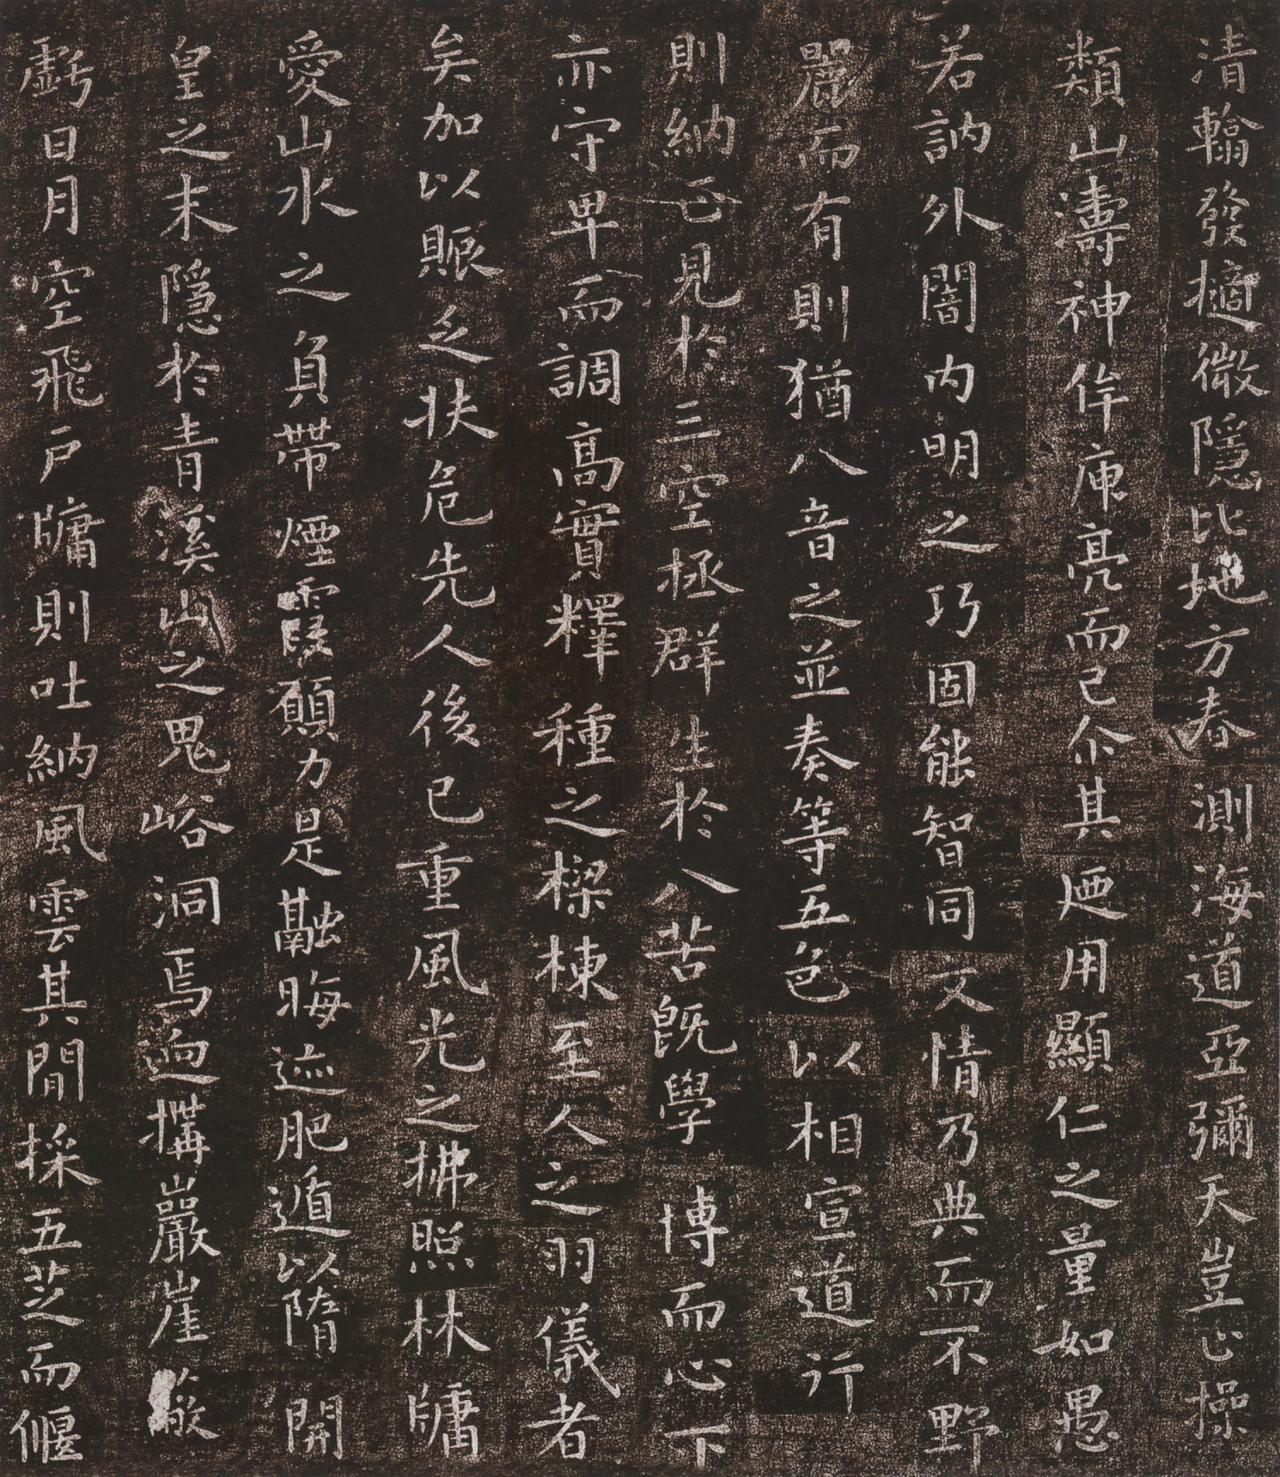 清翰發擿微隱比地方春測海道亞彌天豈止操
類山濤神侔庾亮而已尒其廼用顯仁之量如愚
若訥外闇内明之巧固能智同文情乃典而不野
麗而有則猶八音之並奏等五色以相宣道行
則納正見於三空拯群生於八苦既學博而心下
亦守卑而調高實釋種之樑棟至人之羽儀者
矣加以賑乏扶危先人後已重風光之拂照林牖
愛山水之負帶煙霞願力是融晦迹肥遁以隋開
皇之末隱於青溪山之鬼峪洞焉迺搆巖崖
虧日月空飛戸牖則吐納風雲其間採五芝而偃